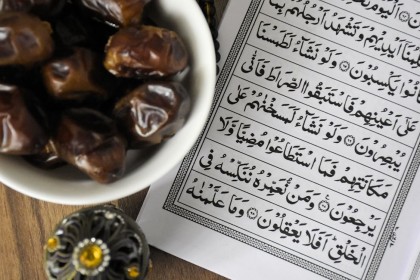 اَلْيَوْمَ نَ
نَا اَيْدِيْهِمْ وَتَشْهَدُ اَرْجُلُهُمْ بِمَا
نُوْا يَكْسِبُوْنَ ۝ وَلَوْ نَشَاۤءُ لَطَمَسْنَا
عَلٰٓى اَعْيُنِهِمْ فَاسْتَبَقُوا الصِّرَاطَ فَاَنّٰى
يُبْصِرُوْنَ ۝ وَلَوْ نَشَاۤءُ لَمَسَخْنٰهُمْ عَلٰى
مَكَانَتِهِمْ فَمَا اسْتَطَاعُوْا مُضِيًّا وَّلَا
يَرْجِعُوْنَ ۝ وَمَنْ نُّعَمِّرْهُ نُنَكِّسْهُ فِى
الْخَلْقِۗ اَفَلَا يَعْقِلُوْنَ ۝ وَمَا عَلَّمْنٰهُ